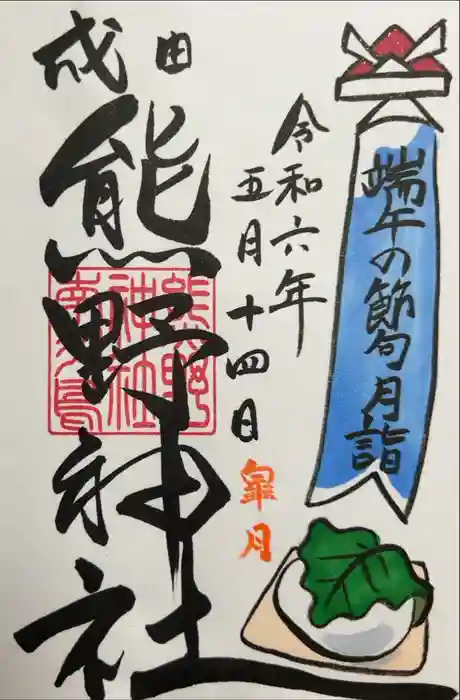 端午の節句月詣
令和六年
五月十四日
皐月
成田
熊野神社
熊野
神社